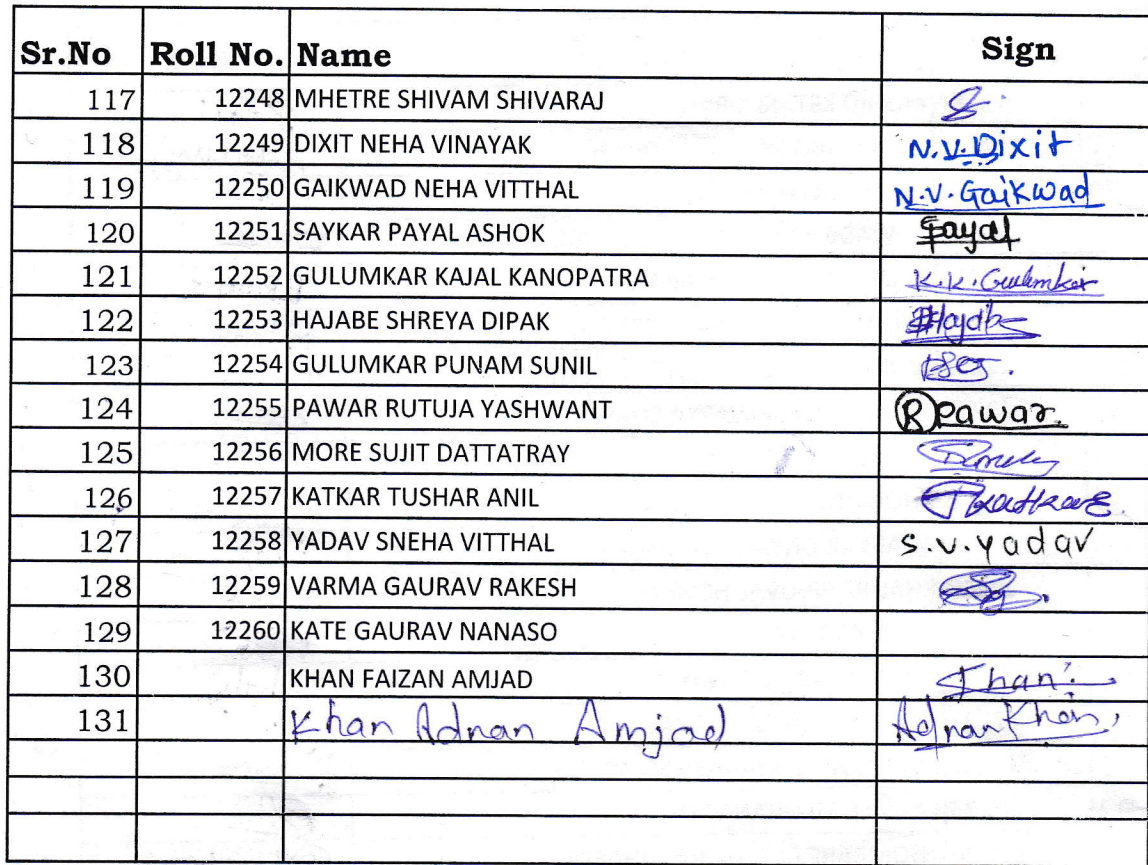 Sr.No Roll No. Name Sign
117 12248 MHETRE SHIVAM SHIVARAJ
118 12249 DIXIT NEHA VINAYAK N.V.Dixit
119 12250 GAIKWAD NEHA VITTHAL N.V.Gaikwad
120 12251 SAYKAR PAYAL ASHOK Payal
121 12252 GULUMKAR KAJAL KANOPATRA K.K.Gulumkar
122 12253 HAJABE SHREYA DIPAK
123 12254 GULUMKAR PUNAM SUNIL
124 12255 PAWAR RUTUJA YASHWANT R Pawar.
125 12256 MORE SUJIT DATTATRAY
126 12257 KATKAR TUSHAR ANIL
127 12258 YADAV SNEHA VITTHAL S.V.Yadav
128 12259 VARMA GAURAV RAKESH
129 12260 KATE GAURAV NANASO
130 KHAN FAIZAN AMJAD Khan
131 Khan Adnan Amjad Adnan Khan